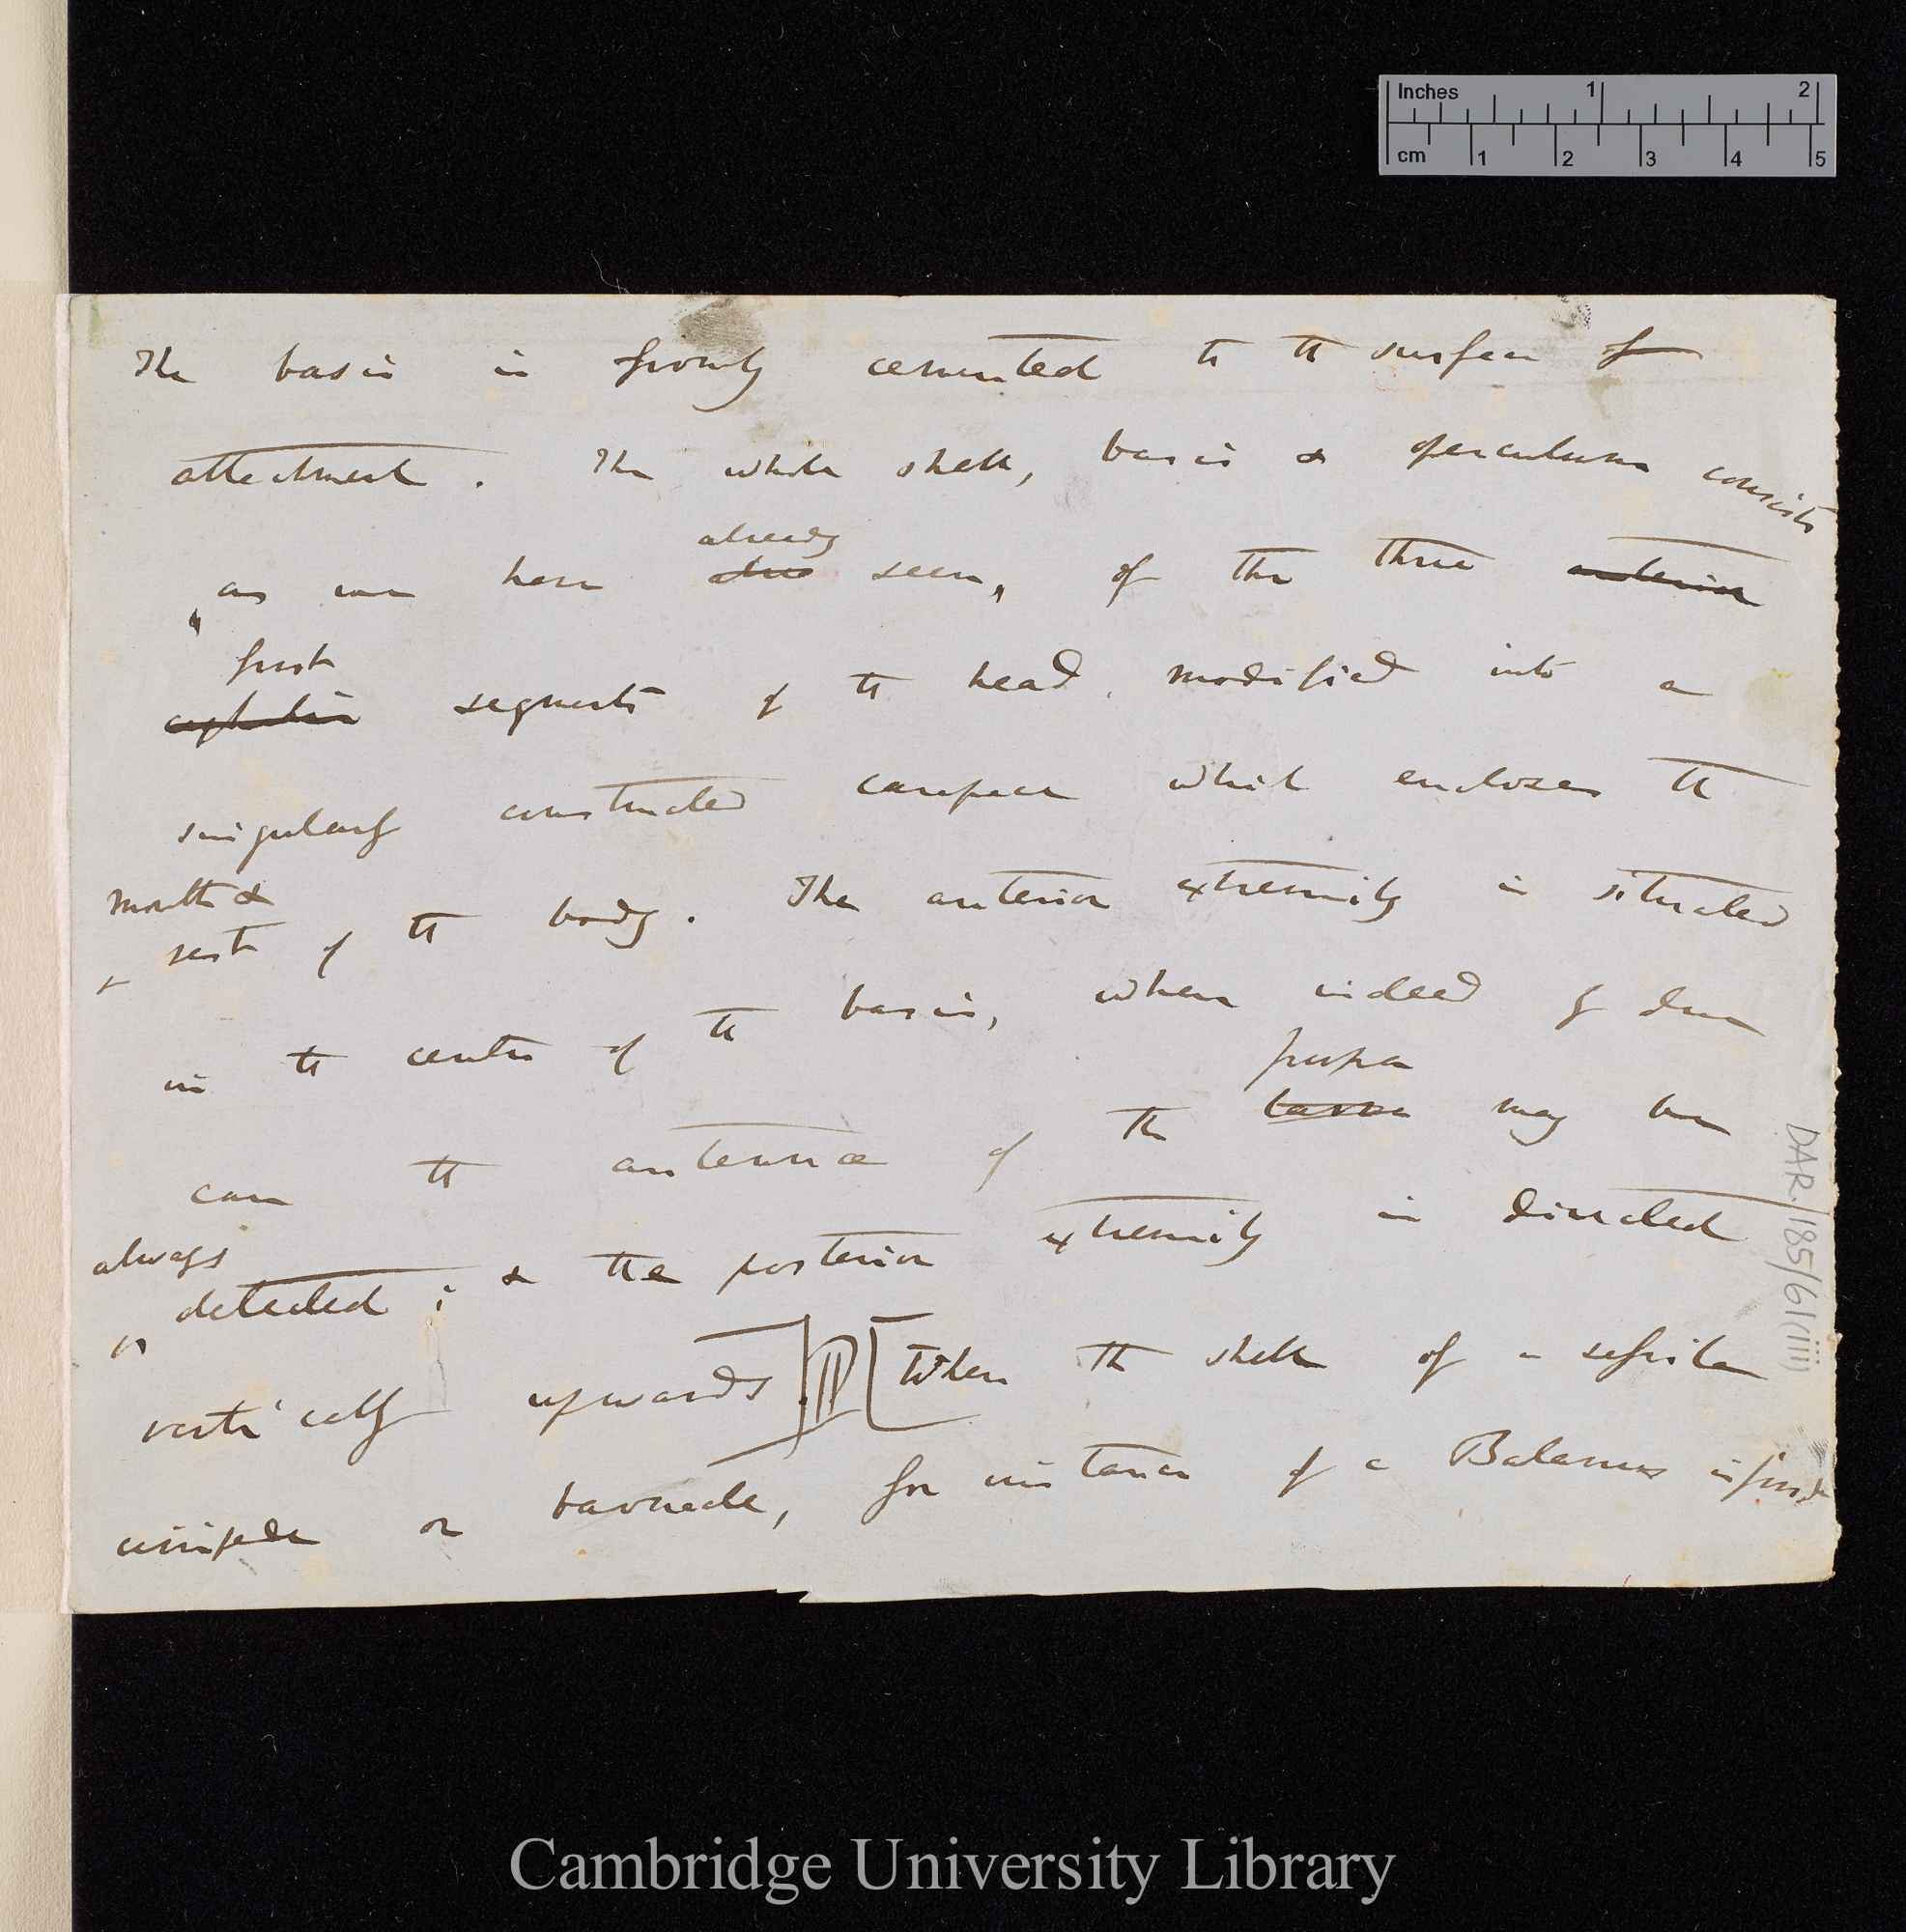 Inches 1 2
cm 1 2 3 4 5
The basis is firmly cemented to the surface of
attachment. The whole shell, basis & operculum consists
already
, as we have also seen, of the three anterior
first
cephalic segments of the head, modified into a
singularly constructed carapace which encloses the
mouth &
rest of the body. The anterior extremity is situated
in the centre of the basis, where indeed if due
pupa
care the antennæ of the larva may be
always
detected; & the posterior extremity is directed
vertically upwards.] [When the shell of a sessile
cirripede or barnacle, for instance of a Balanus is first
DAR./185/61(iii)
Cambridge University Library